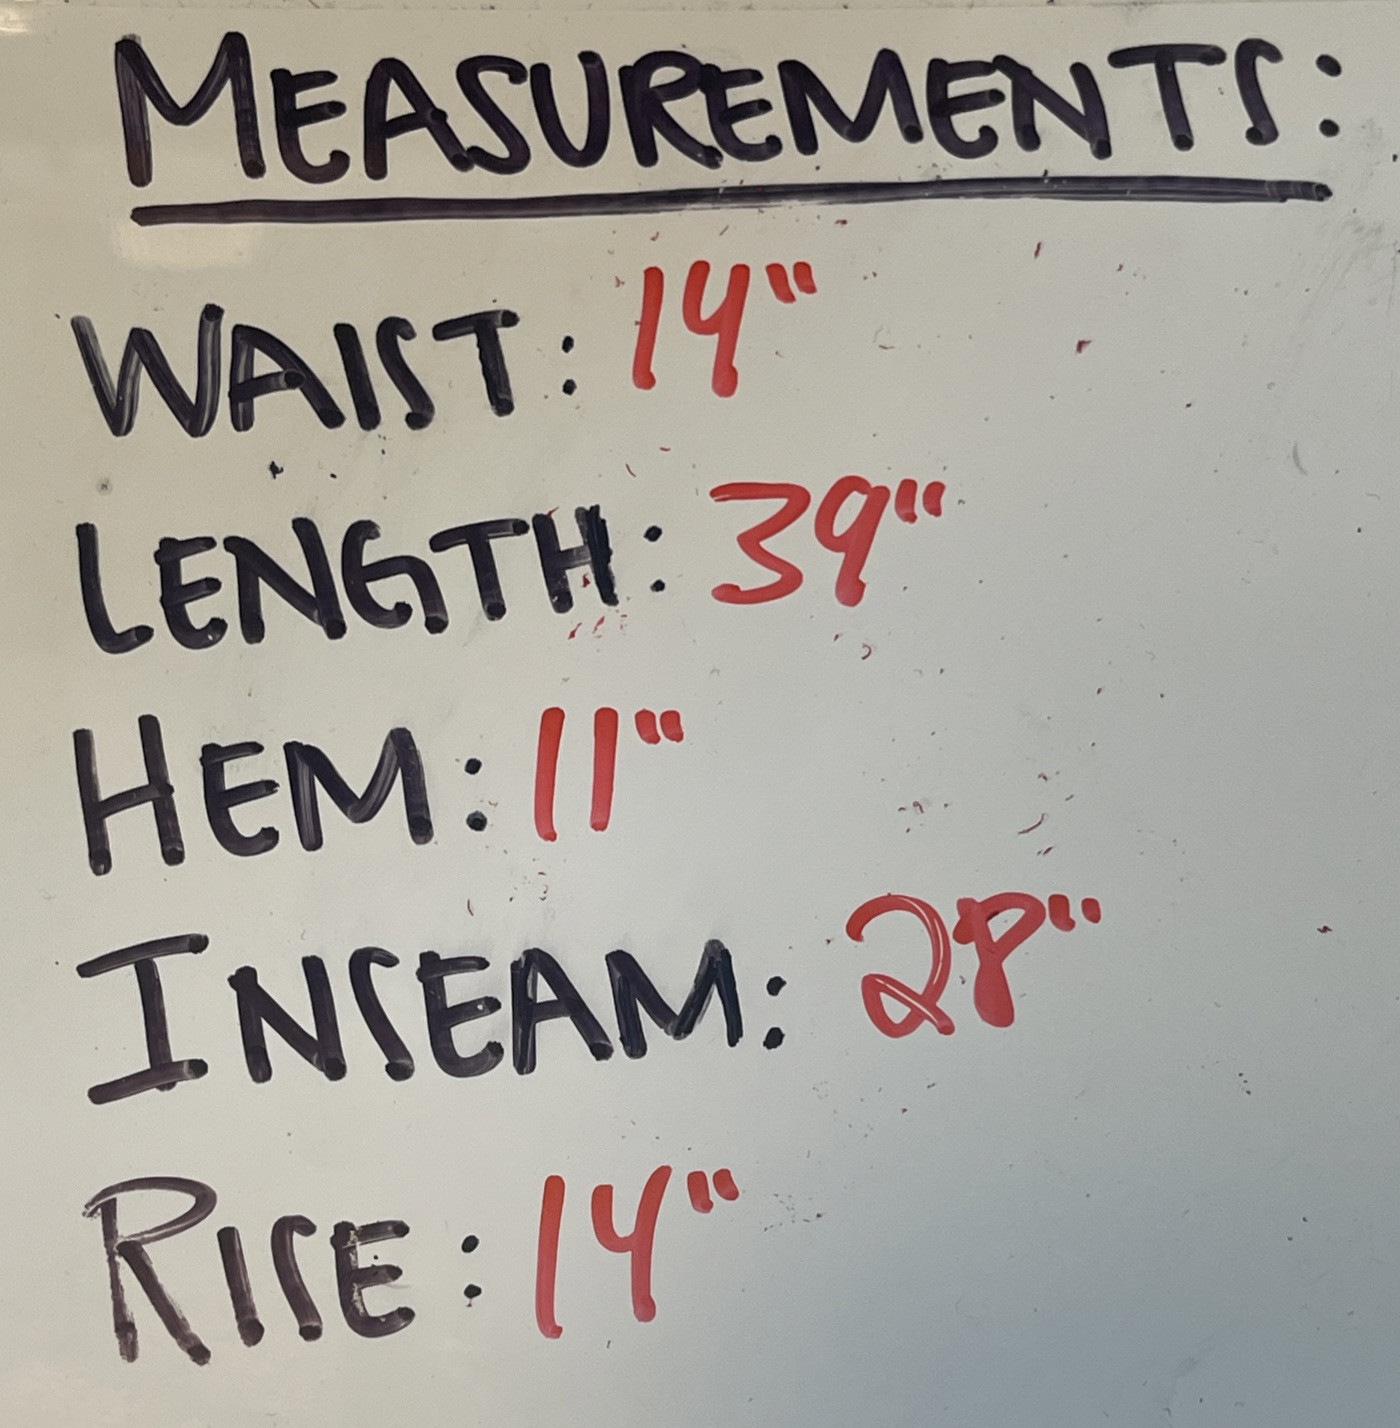 MEASUREMENTS:
WAIST: 14"
LENGTH: 39"
HEM: 11"
INSEAM: 28"
RISE: 14"